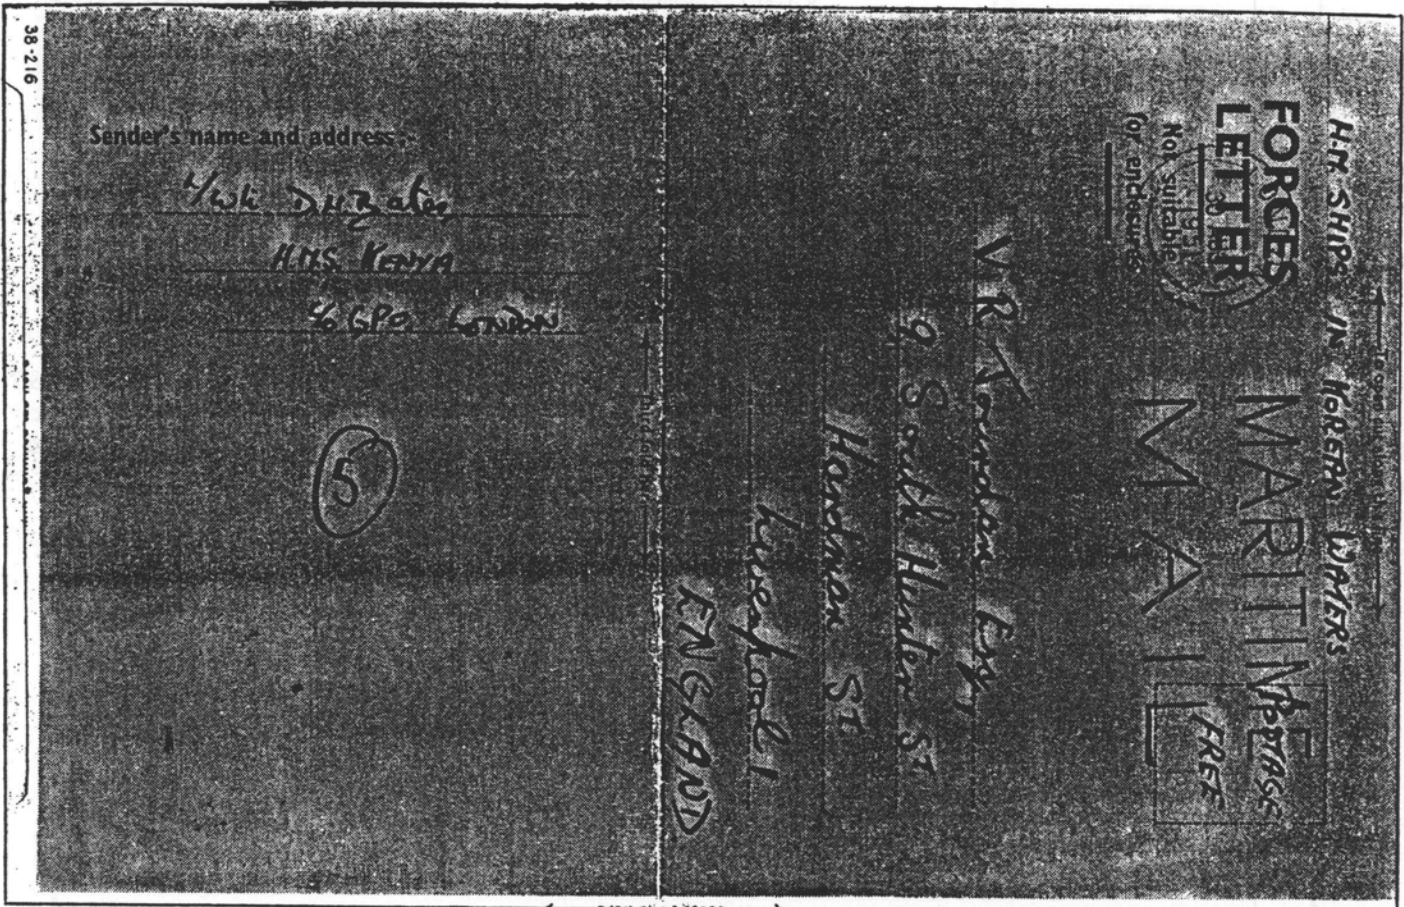 38-216
Sender's name and address:-
D H Bates
H.M.S. KENYA
c/o GPO. LONDON
5
Third fold
H.M SHIPS IN KOREAN WATERS
To open cut along this
FORCES
LETTER
Not suitable
for enclosure
1951
MARITIME
MAIL
POSTAGE
FREE
V R Jourdan Esq
9 South Hunter St
Hardman St
Liverpool 1
ENGLAND